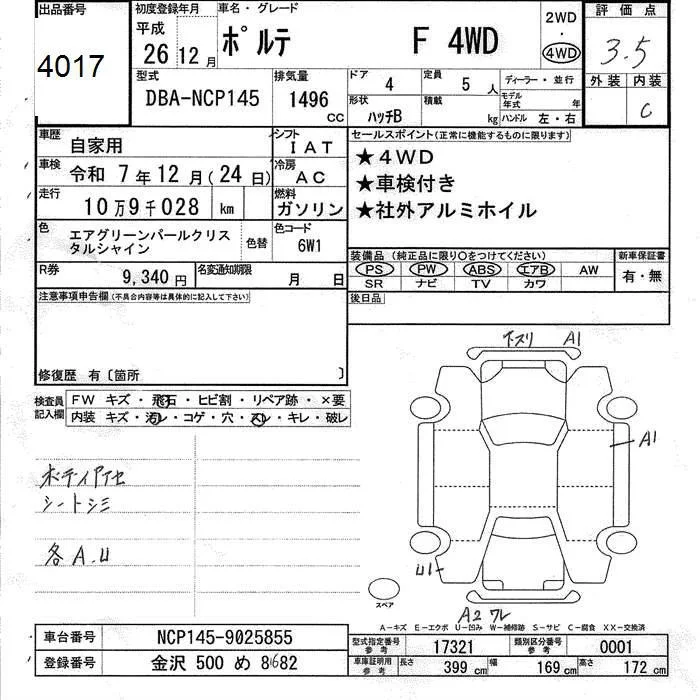 出品番号 初度登録年月 車名・グレード 2WD 評価点
4017 平成 26 12月 ポルテ F 4WD ・ 4WD 3.5
型式 排気量 ドア 4 定員 5人 ディーラー・並行 外装 内装
DBA-NCP145 1496 CC 形状 ハッチB 積載 kg モデル年式 年 ハンドル 左・右 C
車歴 自家用 シフト IAT セールスポイント(正常に機能するものに限ります)
車検 令和 7年 12月(24日) 冷房 AC ★4WD
★車検付き
走行 10万9千028 km 燃料 ガソリン ★社外アルミホイル
色 エアグリーンパールクリスタルシャイン 色替 色コード 6W1
装備品(純正品に限り○をつけてください) 新車保証書
R券 9,340円 名変通知期限 月 日 PS PW ABS エアB AW 有・無
SR ナビ TV カワ
注意事項申告欄(不具合内容等は具体的に記入して下さい) 後日品
下スリ A1
修復歴 有〔箇所 〕
検査員記入欄 FW キズ・飛石・ヒビ割・リペア跡・×要
内装 キズ・汚レ・コゲ・穴・スレ・キレ・破レ
A1
ボディアセ
シートシミ
各A.U
U1
スペア
A2 ワレ
A-キズ E-エクボ U-凹み W-補修跡 S-サビ C-腐食 XX-交換済
車台番号 NCP145-9025855 型式指定番号 参考 17321 類別区分番号 参考 0001
登録番号 金沢 500 め 8682 車庫証明用 参考 長さ 399 cm 幅 169 cm 高さ 172 cm